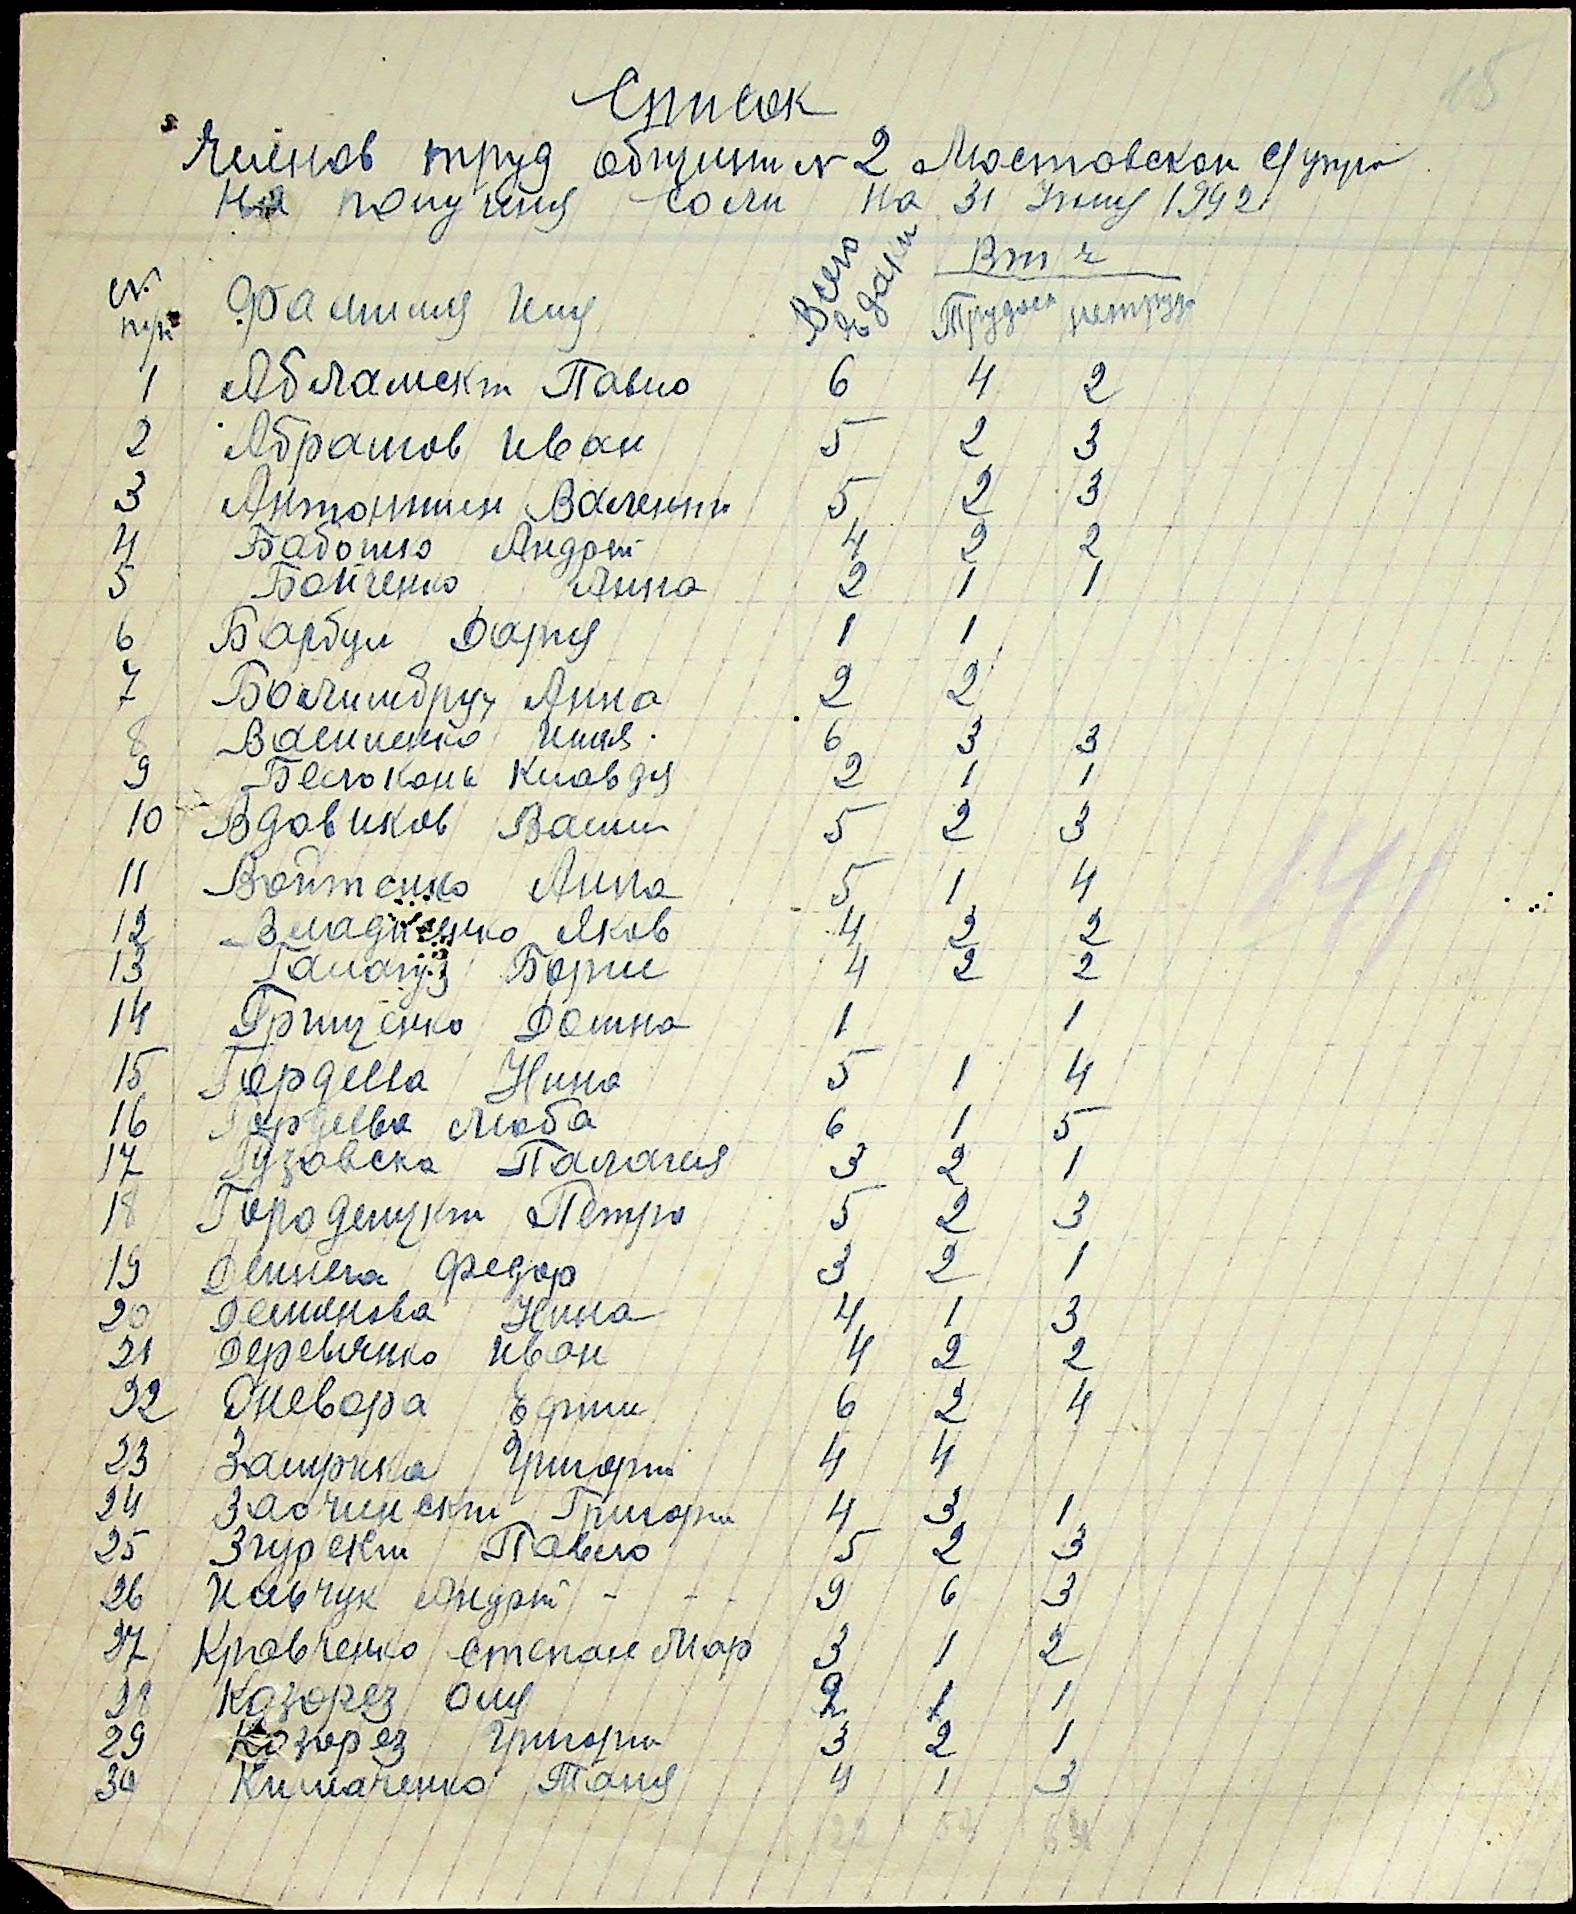 15
Список
Членов труд общини № 2 Мостовской с/упр
На получиня соли на 31 Июня 1942
№ п/п Фамилия Имя Всего едаки В т ч Трудосп нетруд
1 Абламский Павло 6 4 2
2 Абрамов Иван 5 2 3
3 Антонишин Валенти 5 2 3
4 Бабошко Андрей 4 2 2
5 Бойченко Анна 2 1 1
6 Барбул Дария 1 1
7 Анна 2 2
8 Василенко Илия 6 3 3
9 Белоконь Клавдя 2 1 1
10 Вдовиков Васил 5 2 3
11 Войтенко Анна 5 1 4
12 Владиченко Яков 4 2 2
13 Галагуз Борис 4 2 2
14 Грищенко Домна 1 1
15 Гордеева Нина 5 1 4
16 Гордеева Люба 6 1 5
17 Гузовска Палагея 3 2 1
18 Городецкий Петро 5 2 3
19 Федор 3 2 1
20 Деминова Нина 4 1 3
21 Деревянко Иван 4 2 2
22 Дневора Ефим 6 2 4
23 Григорий 4 4
24 Григори 4 3 1
25 Згурский Павло 5 2 3
26 Ильчук Андрей - - - 9 6 3
27 Кравченко Степан Мар 3 1 2
28 Козорез Оля 2 1 1
29 Козорез Григори 3 2 1
30 Климаченко Таня 4 1 3